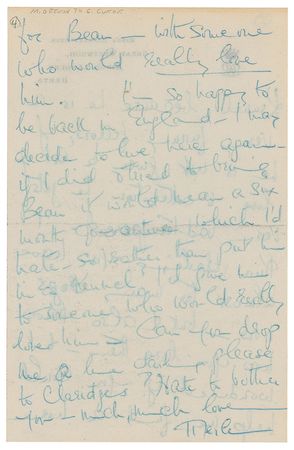 ④
M. OBERON TO G. CUKOR
for Beau – with someone
who would really love
him. I'm so happy to
be back in England – I may
decide to live here again –
if I did & tried to bring
Beau it would mean a six
month quarantine which I'd
hate – so rather than put him
in a kennel I'd give him
to someone who would really
love him – Can you drop
me a line darling please
to Claridges? Hate to bother
you – much, much love
Merle